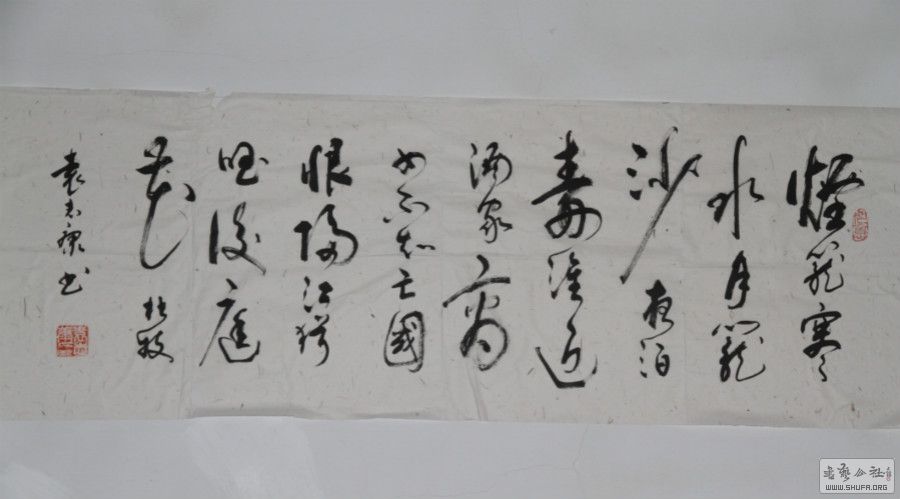 煙籠寒
水月籠
沙夜泊
秦淮近
酒家商
女不知亡國
恨隔江猶
唱後庭
花 杜牧
袁志书
書藝公社
WWW.SHUFA.ORG